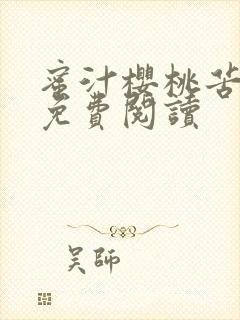 蜜汁櫻桃苦
免費閱讀
吴師